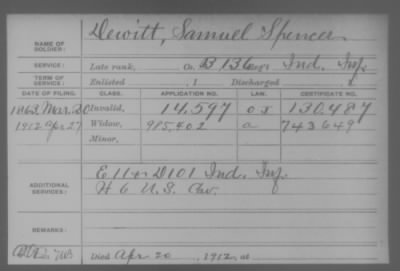 NAME OF SOLDIER: Dewitt, Samuel Spencer
SERVICE: Late rank, Co. B 136 Reg't Ind. Inf.
TERM OF SERVICE: Enlisted , 1 Discharged , 1
DATE OF FILING. CLASS. APPLICATION NO. LAW. CERTIFICATE NO.
1863, Mar. 20 Invalid, 14,597 130,487
1912 Apr. 27 Widow, 985,402 a 743649
Minor,
ADDITIONAL SERVICES: E 11 & D 101 Ind. Inf.
H 6 U.S. Cav.
REMARKS:
Died Apr. 20, 1912, at